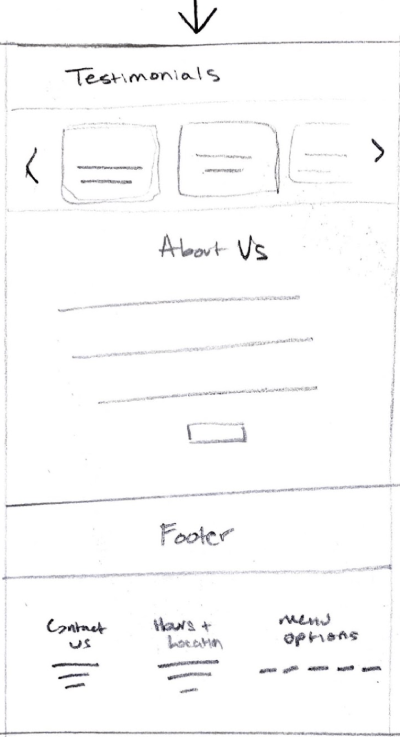 Testimonials
About Us
Footer
Contact
us
Hours +
Location
Menu
options